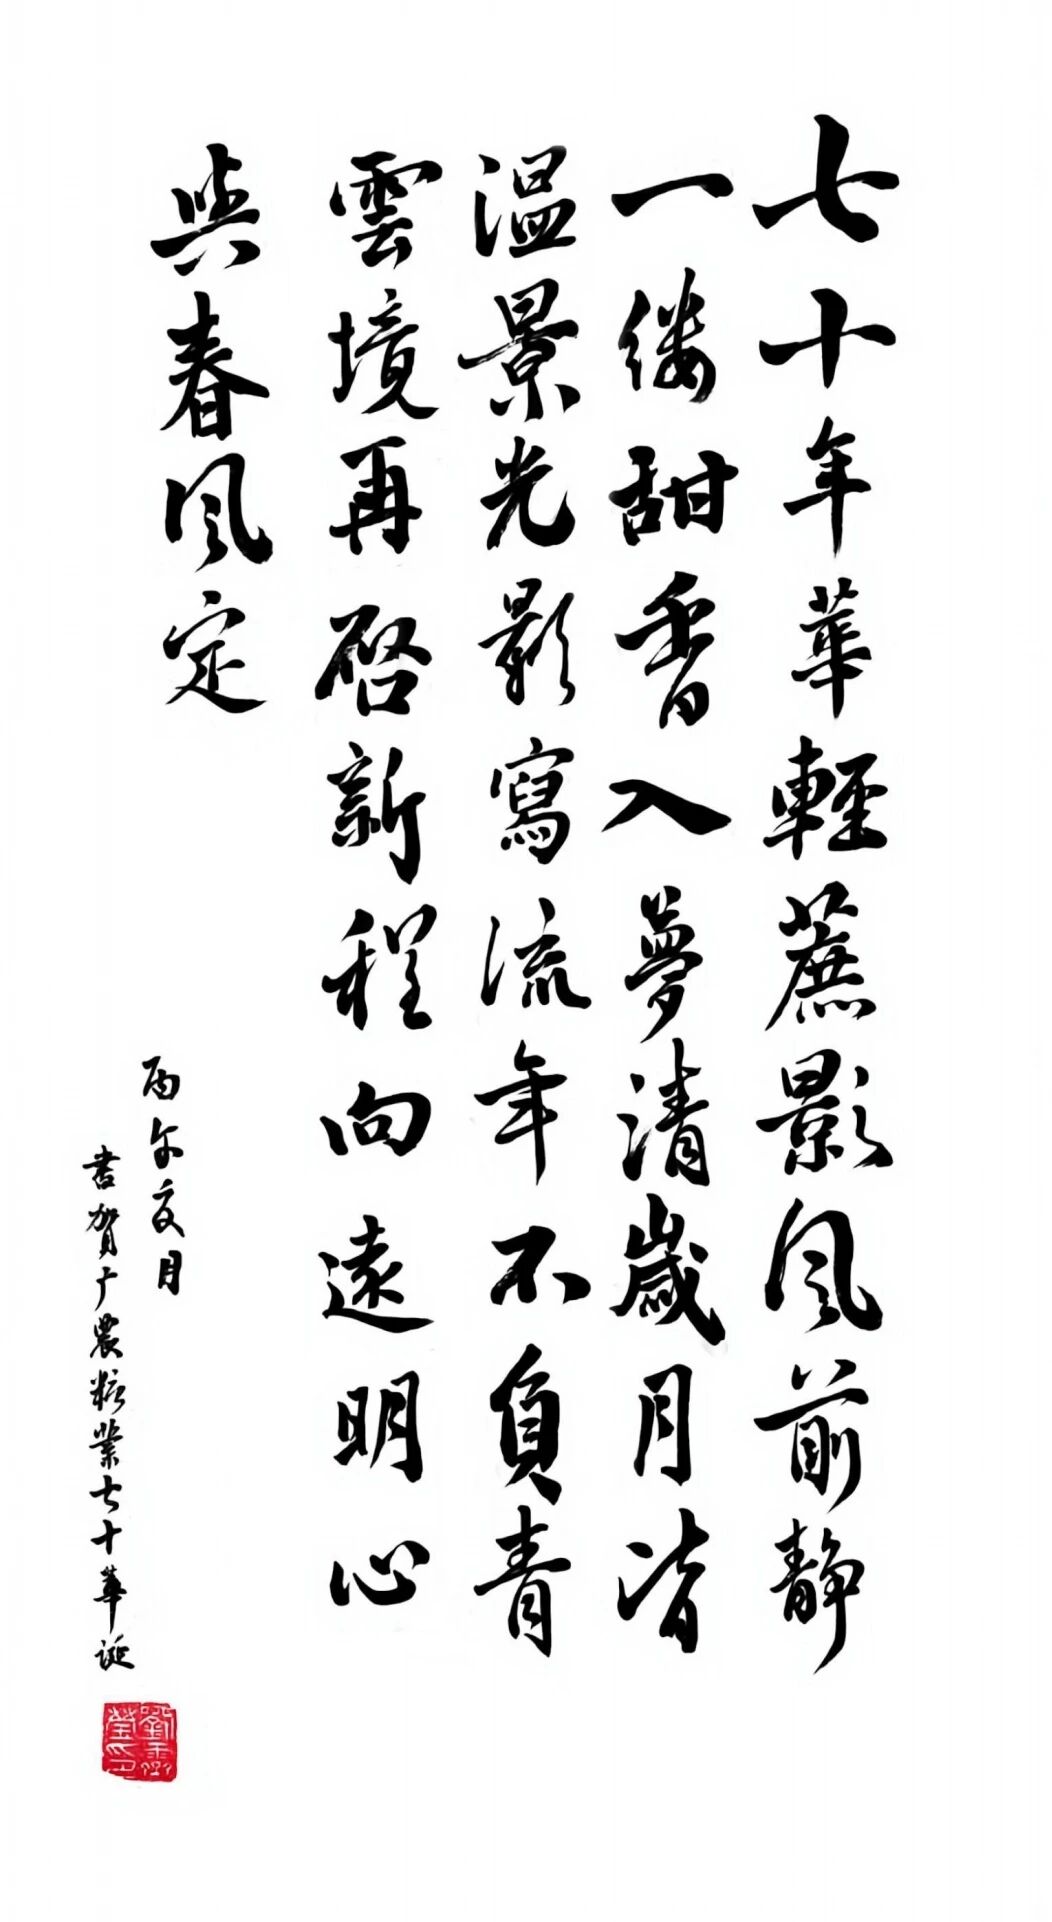 七十年華輕蔗影风前静
一缕甜香入夢清歲月皆
温景光影寫流年不負青
雲境再啓新程向遠明心
與春风定
丙午夏月
書賀广農糖業七十華誕